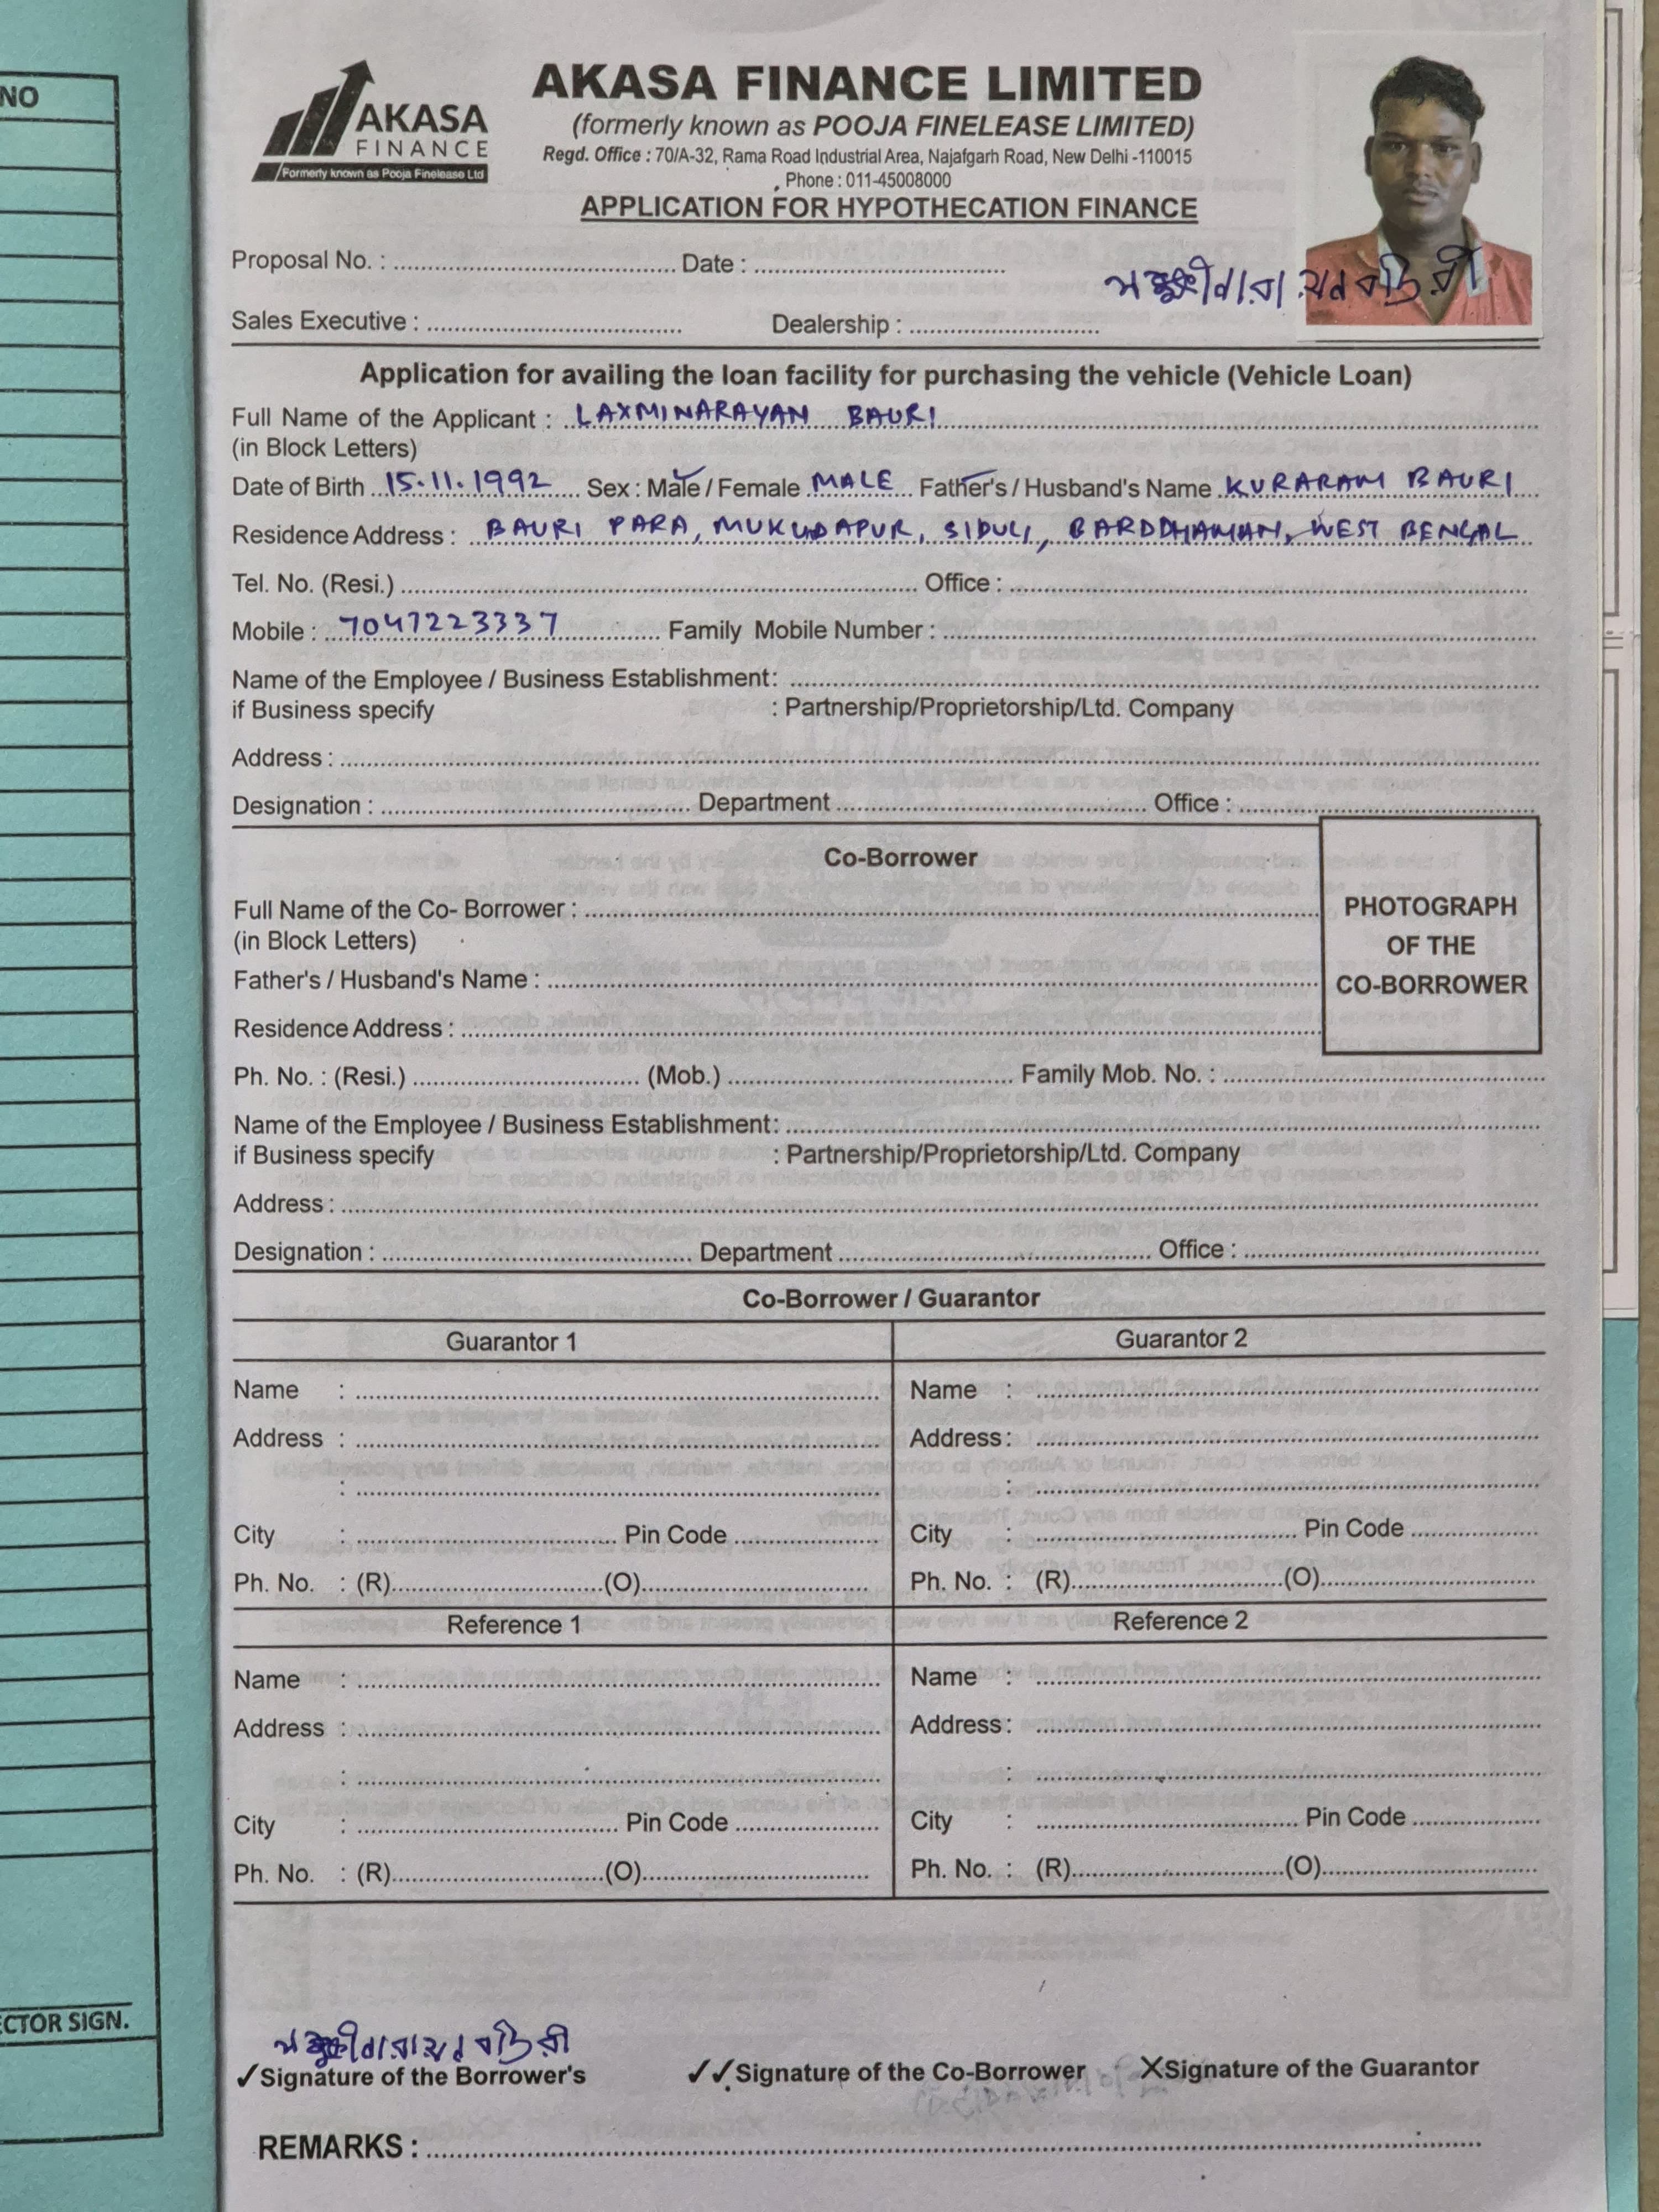 NO
AKASA
FINANCE
Formerly known as Pooja Finelease Ltd
AKASA FINANCE LIMITED
(formerly known as POOJA FINELEASE LIMITED)
Regd. Office : 70/A-32, Rama Road Industrial Area, Najafgarh Road, New Delhi -110015
Phone : 011-45008000
APPLICATION FOR HYPOTHECATION FINANCE
Proposal No. : Date :
Sales Executive : Dealership :
Application for availing the loan facility for purchasing the vehicle (Vehicle Loan)
Full Name of the Applicant : LAXMINARAYAN BAURI
(in Block Letters)
Date of Birth 15.11.1992 Sex : Male / Female MALE Father's / Husband's Name KURARAM BAURI
Residence Address : BAURI PARA, MUKUDAPUR, SIDULI, BARDDHAMAN, WEST BENGAL
Tel. No. (Resi.) Office :
Mobile : 7047223337 Family Mobile Number :
Name of the Employee / Business Establishment:
if Business specify : Partnership/Proprietorship/Ltd. Company
Address :
Designation : Department Office :
Co-Borrower
Full Name of the Co- Borrower :
(in Block Letters)
Father's / Husband's Name :
Residence Address :
PHOTOGRAPH
OF THE
CO-BORROWER
Ph. No. : (Resi.) (Mob.) Family Mob. No. :
Name of the Employee / Business Establishment:
if Business specify : Partnership/Proprietorship/Ltd. Company
Address :
Designation : Department Office :
Co-Borrower / Guarantor
Guarantor 1 Guarantor 2
Name : Name :
Address : Address :
: :
City : Pin Code City : Pin Code
Ph. No. : (R) (O) Ph. No. : (R) (O)
Reference 1 Reference 2
Name : Name :
Address : Address :
: :
City : Pin Code City : Pin Code
Ph. No. : (R) (O) Ph. No. : (R) (O)
CTOR SIGN.
✓Signature of the Borrower's ✓✓Signature of the Co-Borrower XSignature of the Guarantor
REMARKS :